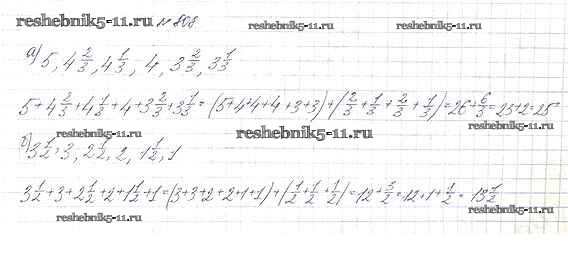 reshebnik5-11.ru № 808 reshebnik5-11.ru reshebnik5-11.ru
а) 5, 4 2/3, 4 1/3, 4, 3 2/3, 3 1/3
5+4 2/3+4 1/3+4+3 2/3+3 1/3=(5+4+4+4+3+3)+(2/3+1/3+2/3+1/3)=26+6/3=23+2=25
reshebnik5-11.ru reshebnik5-11.ru reshebnik5-11.ru
б) 3 1/2, 3, 2 1/2, 2, 1 1/2, 1
reshebnik5-11.ru
3 1/2+3+2 1/2+2+1 1/2+1=(3+3+2+2+1+1)+(1/2+1/2+1/2)=12+3/2=12+1+1/2=13 1/2
reshebnik5-11.ru reshebnik5-11.ru